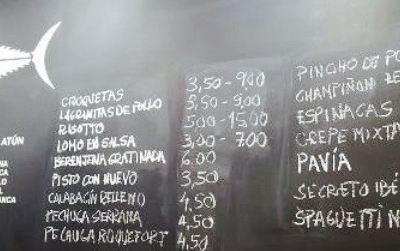 ATÚN
CROQUETAS 3,50-900
LAGRIMITAS DE POLLO 3,50-9,00
RISOTTO 500-1500
LOMO EN SALSA 3,00-700
BERENJENA GRATINADA 6.00
PISTO CON HUEVO 3,50
CALABACÍN RELLENO 4,50
PECHUGA SERRANA 4,50
PECHUGA ROQUEFORT 4,50
PINCHO DE PO
CHAMPIÑON RE
ESPINACAS
CREPE MIXTA
PAVIA
SECRETO IBÉ
SPAGUETTI N